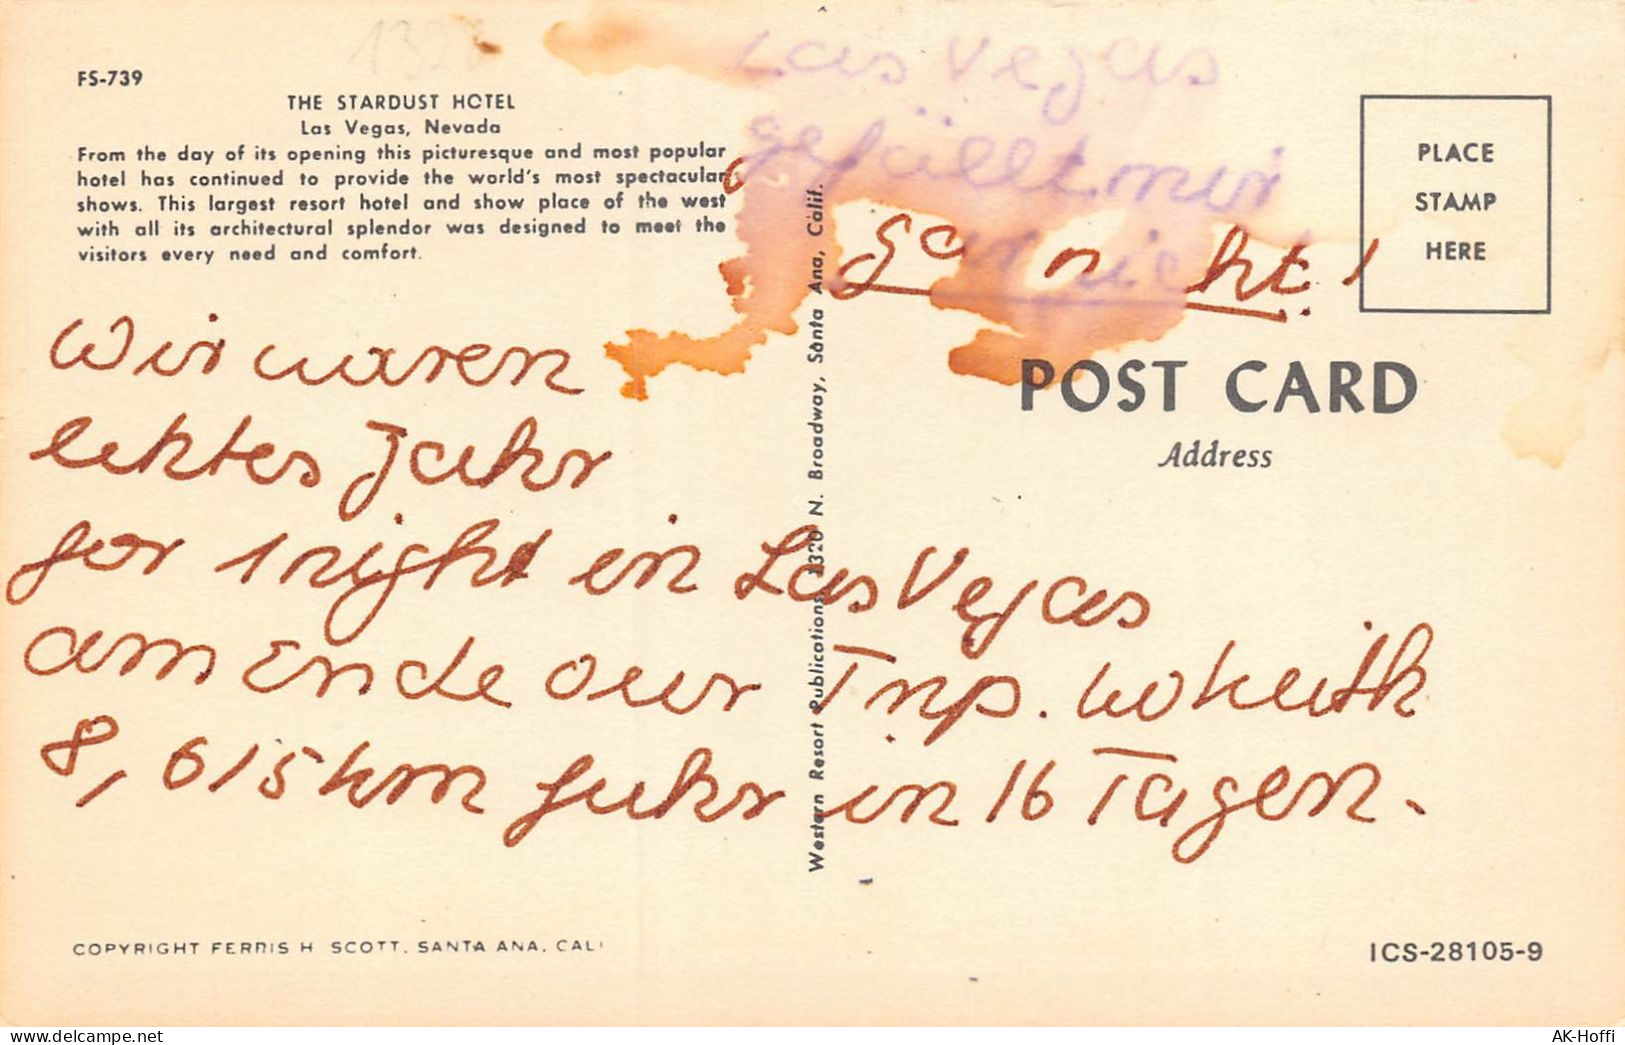 1320
FS-739
THE STARDUST HOTEL
Las Vegas, Nevada
From the day of its opening this picturesque and most popular
hotel has continued to provide the world's most spectacular
shows. This largest resort hotel and show place of the west
with all its architectural splendor was designed to meet the
visitors every need and comfort.
Las Vegas
gefällt mir
gar nicht!
PLACE
STAMP
HERE
POST CARD
Address
Wir waren
letztes Jahr
for 1 night in Las Vegas
am Ende our Trip. 
8,615 km fuhr in 16 Tagen.
Western Resort Publications, 1320 N. Broadway, Santa Ana, Calif.
COPYRIGHT FERRIS H SCOTT, SANTA ANA, CALI
ICS-28105-9
AK-Hoffi